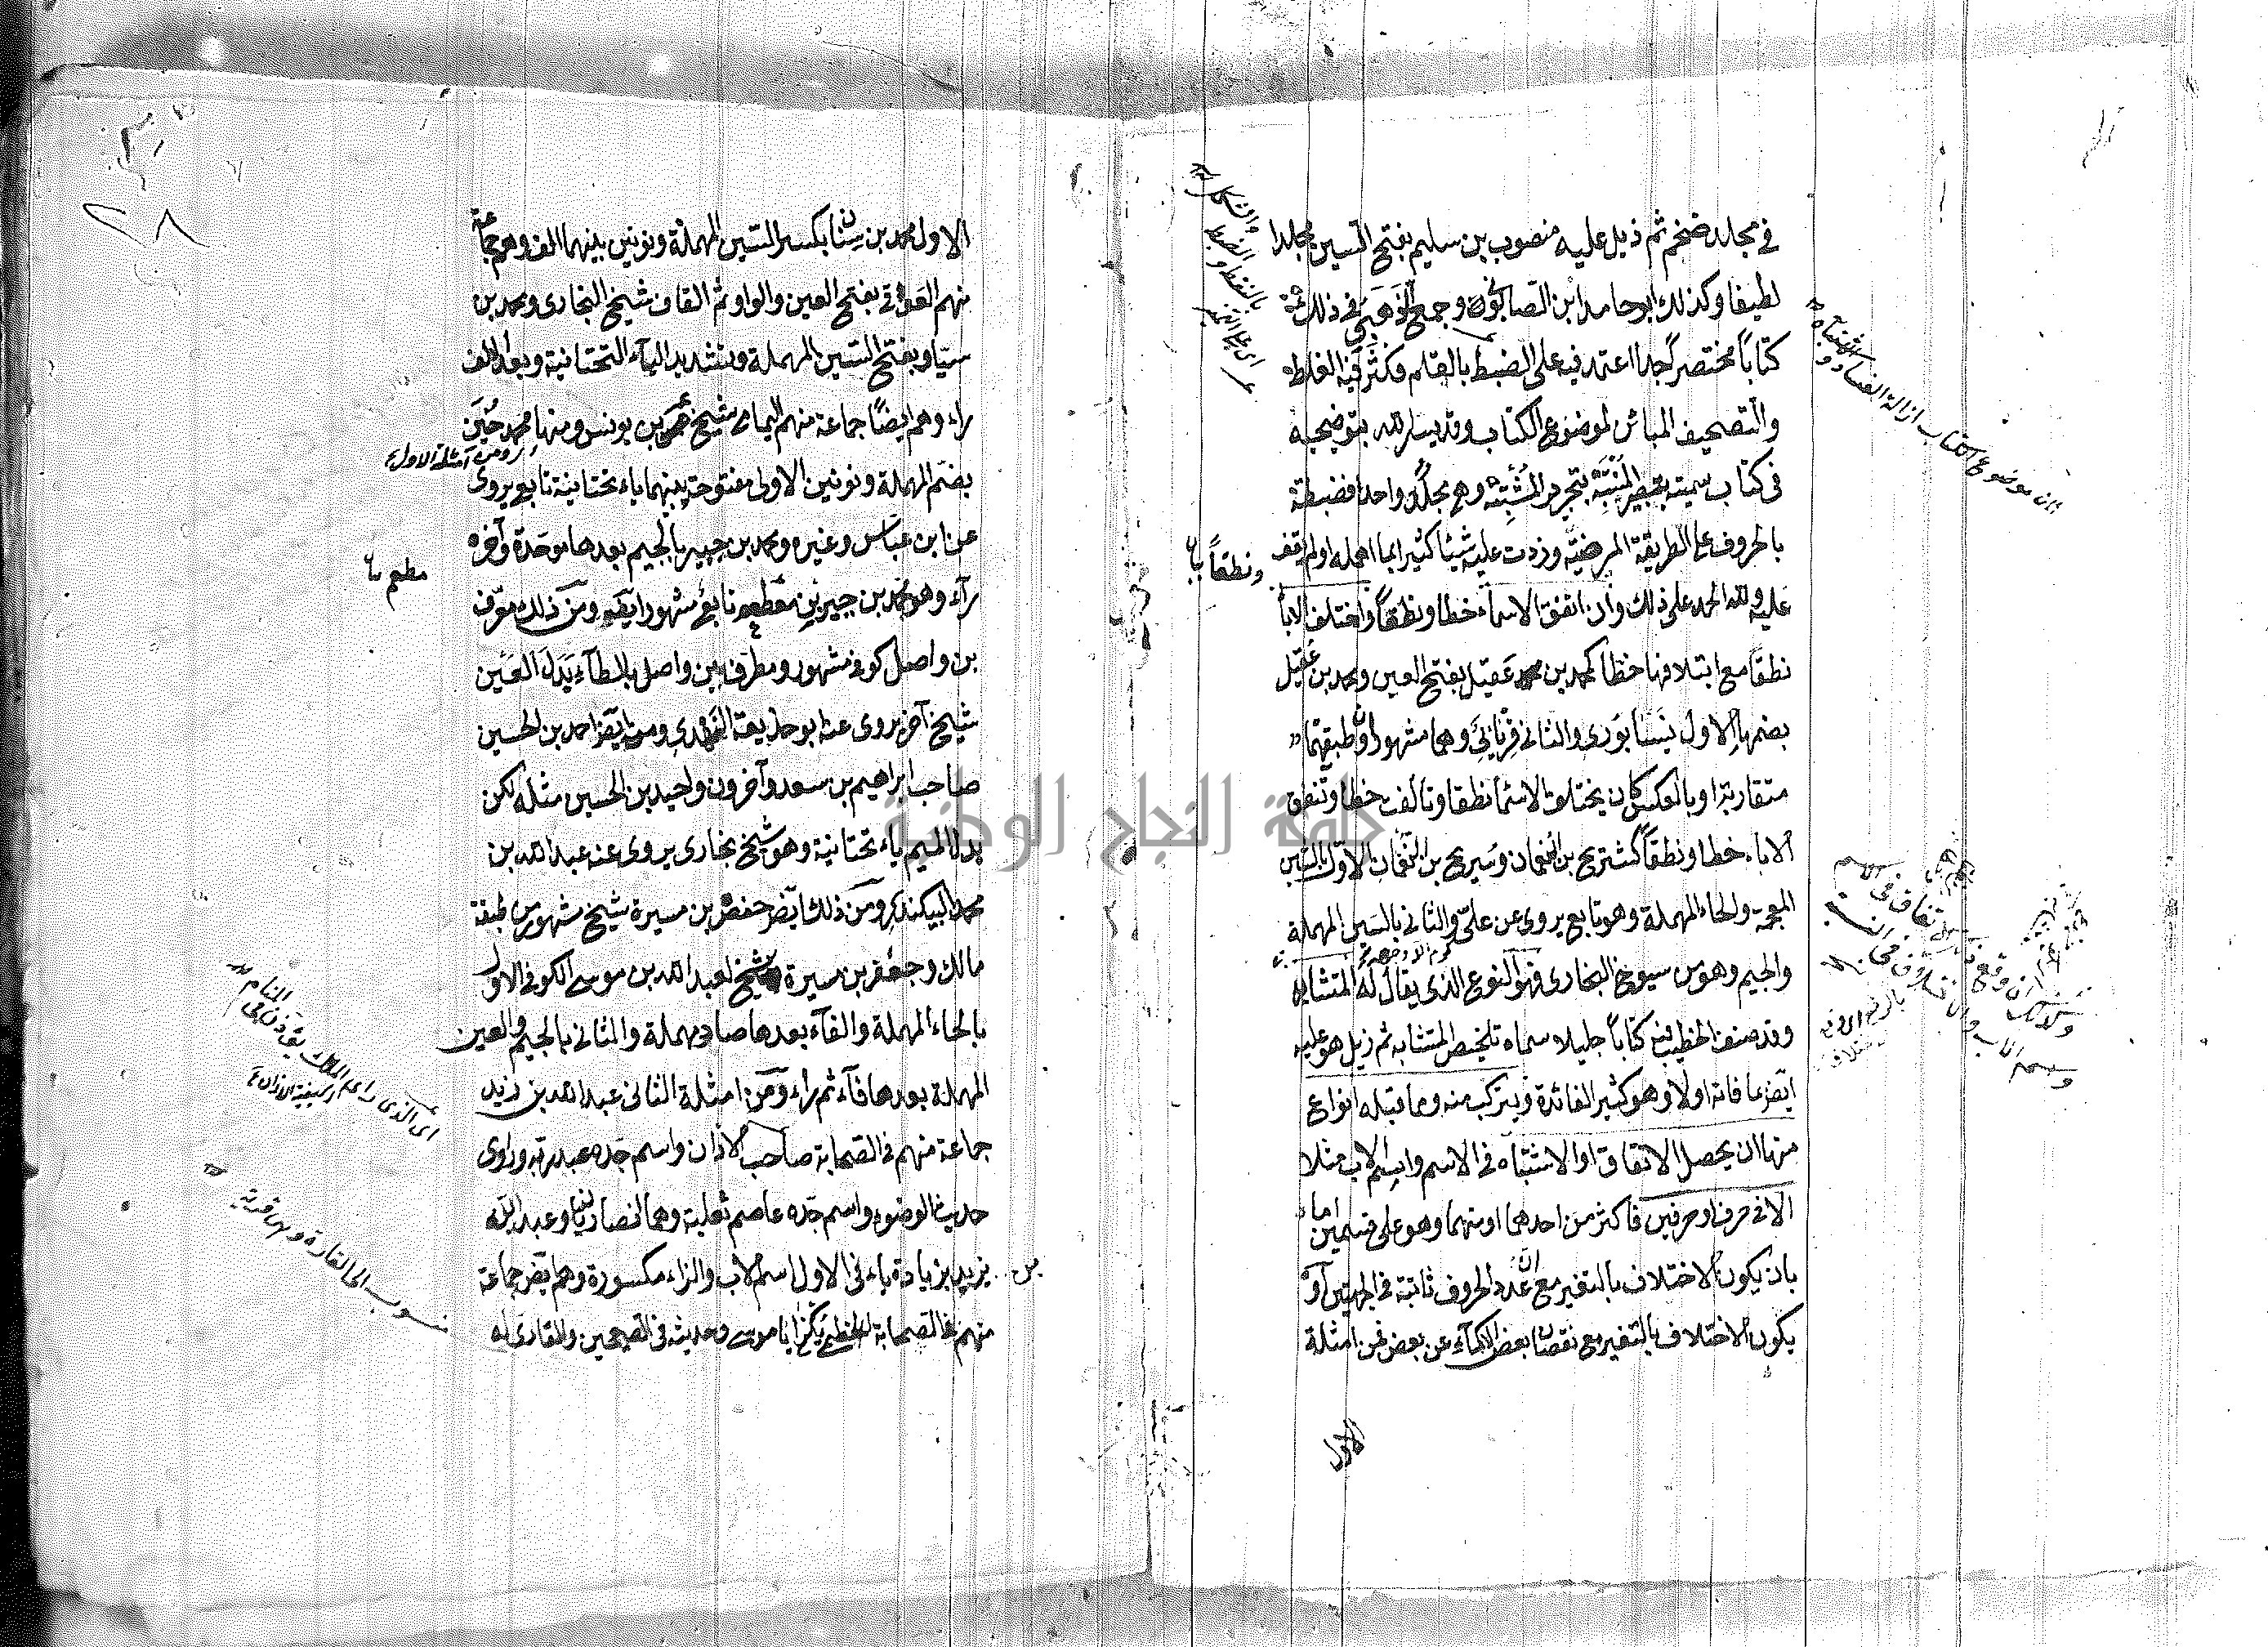 في مجلد ضخم ثم ذيل عليه منصور بن سليم بفتح السين مجلدا
لطيفا وكذلك ابو حامد ابن الصابوني وجمع الذهبي في ذلك
كتابًا مختصرًا جدا اعتمد فيه على الضبط بالقلم فكثر فيه الغلط
والتصحيف المباين لموضوع الكتاب وقد يسر الله بتوضيحه
في كتاب سميته بتبصير المنتبه بتحرير المشتبه وهو مجلد واحد فضبطته
بالحروف على الطريقة المرضية وزدت عليه شيئا كثيرا مما اهمله او لم يقف
عليه ولله الحمد على ذلك وان اتفقت الاسماء خطا ونطقًا واختلفت الابآء
نطقًا مع ائتلافها خطا كمحمد بن عقيل بفتح العين ومحمد بن عقيل
بضمها الاول نيسابوري والثاني فريابي وهما مشهوران وطبقتهما
متقاربة او بالعكس كان يختلف الاسماء نطقا وتأتلف خطا وتتفق
الاباء خطا ونطقًا كشريح بن النعمان وسريج بن النعمان الاول بالشين
المعجمة والحاء المهملة وهو تابعي يروي عن علي والثاني بالسين المهملة
والجيم وهو من شيوخ البخاري فهو النوع الذي يقال له المتشابه
وقد صنف الخطيب فيه كتابًا جليلا سماه تلخيص المتشابه ثم ذيل هو عليه
ايضا بما فاته اولا وهو كثير الفائدة ويتركب منه ومما قبله انواع
منها ان يحصل الاتفاق او الاشتباه في الاسم واسم الاب مثلا
الا في حرف او حرفين فاكثر من احدهما او منهما وهو على قسمين اما
بان يكون الاختلاف بالتغير مع ان عدد الحروف ثابتة في الجهتين او
يكون الاختلاف بالتغير مع نقصان بعض الاسماء عن بعض فمن امثلة
الاول
ونطقاً
بالنقط والشكل
ان موضوع الكتاب ازالة الفساد والاشتباه
الاول محمد بن سنان بكسر السين المهملة ونونين بينهما الف وهم جماعة
منهم العوقي بفتح العين والواو ثم القاف شيخ البخاري ومحمد بن
سيار بفتح السين المهملة وتشديد الياء التحتانية وبعد الالف
راء وهم ايضًا جماعة منهم اليمامي شيخ عمر بن يونس ومنها محمد بن حنين
ومن امثلة الاول
بضم المهملة ونونين الاولى مفتوحة بينهما ياء تحتانية تابعي يروي
عن ابن عباس وغيره ومحمد بن جبير بالجيم بعدها موحدة وآخره
رآء وهو محمد بن جبير بن مطعم تابعي مشهور ايضا ومن ذلك معرف
مطعم
بن واصل كوفي مشهور ومطرف بن واصل بالطاء بدل العين
شيخ آخر يروي عنه ابو حذيفة النهدي ومنه ايضا احمد بن الحسين
صاحب ابراهيم بن سعد وآخرون واحيد بن الحسين مثله لكن
بدل الميم ياء تحتانية وهو شيخ بخاري يروي عنه عبد الله بن
محمد البيكندي ومن ذلك ايضا حفص بن ميسرة شيخ مشهور من طبقة
مالك وجعفر بن ميسرة شيخ لعبد الله بن موسى الكوفي الاول
بالحاء المهملة والفاء بعدها صاد مهملة والثاني بالجيم والعين
المهملة بعدها فآء ثم راء ومن امثلة الثاني عبد الله بن زيد
جماعة منهم في الصحابة صاحب الاذان واسم جده عبد ربه وراوي
حديث الوضوء واسم جده عاصم ثعلبة وهما انصاريان وعبد الله
بن يزيد بزيادة ياء في الاول اسم الاب والزاء مكسورة وهم ايضا جماعة
منهم في الصحابة الخطمي يكنى ابا موسى وحديثه في الصحيحين والقاري له
اي الذي راى الملك يؤذن في المنام
منسوب الى القارة وهي قرية
جامعة النجاح الوطنية